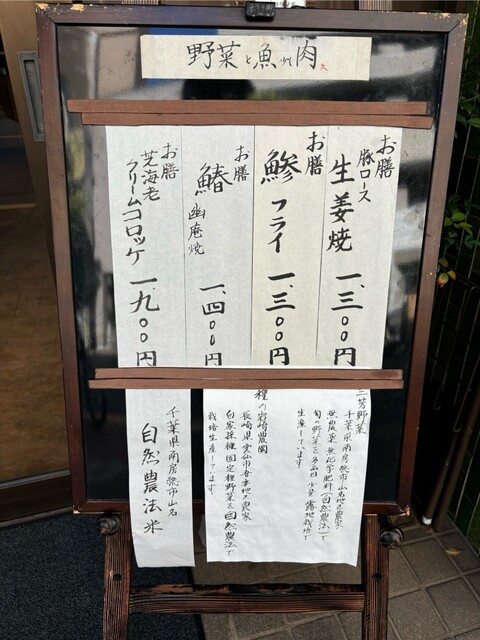 野菜と魚少し肉
お膳
豚ロース
生姜焼 一、三〇〇円
お膳
鯵フライ 一、三〇〇円
お膳
鰆
幽庵焼 一、四〇〇円
お膳
芝海老
クリームコロッケ 一、九〇〇円
三芳野菜
千葉県南房総市山名地区農家
無農薬、無化学肥料(自然農法)で
旬の野菜を多品目少量露地栽培で
生産しています。
種の岩崎農園
長崎県雲仙市吾妻地区農家
自家採種 固定種野菜を自然農法で
栽培生産しています。
千葉県南房総市山名
自然農法米